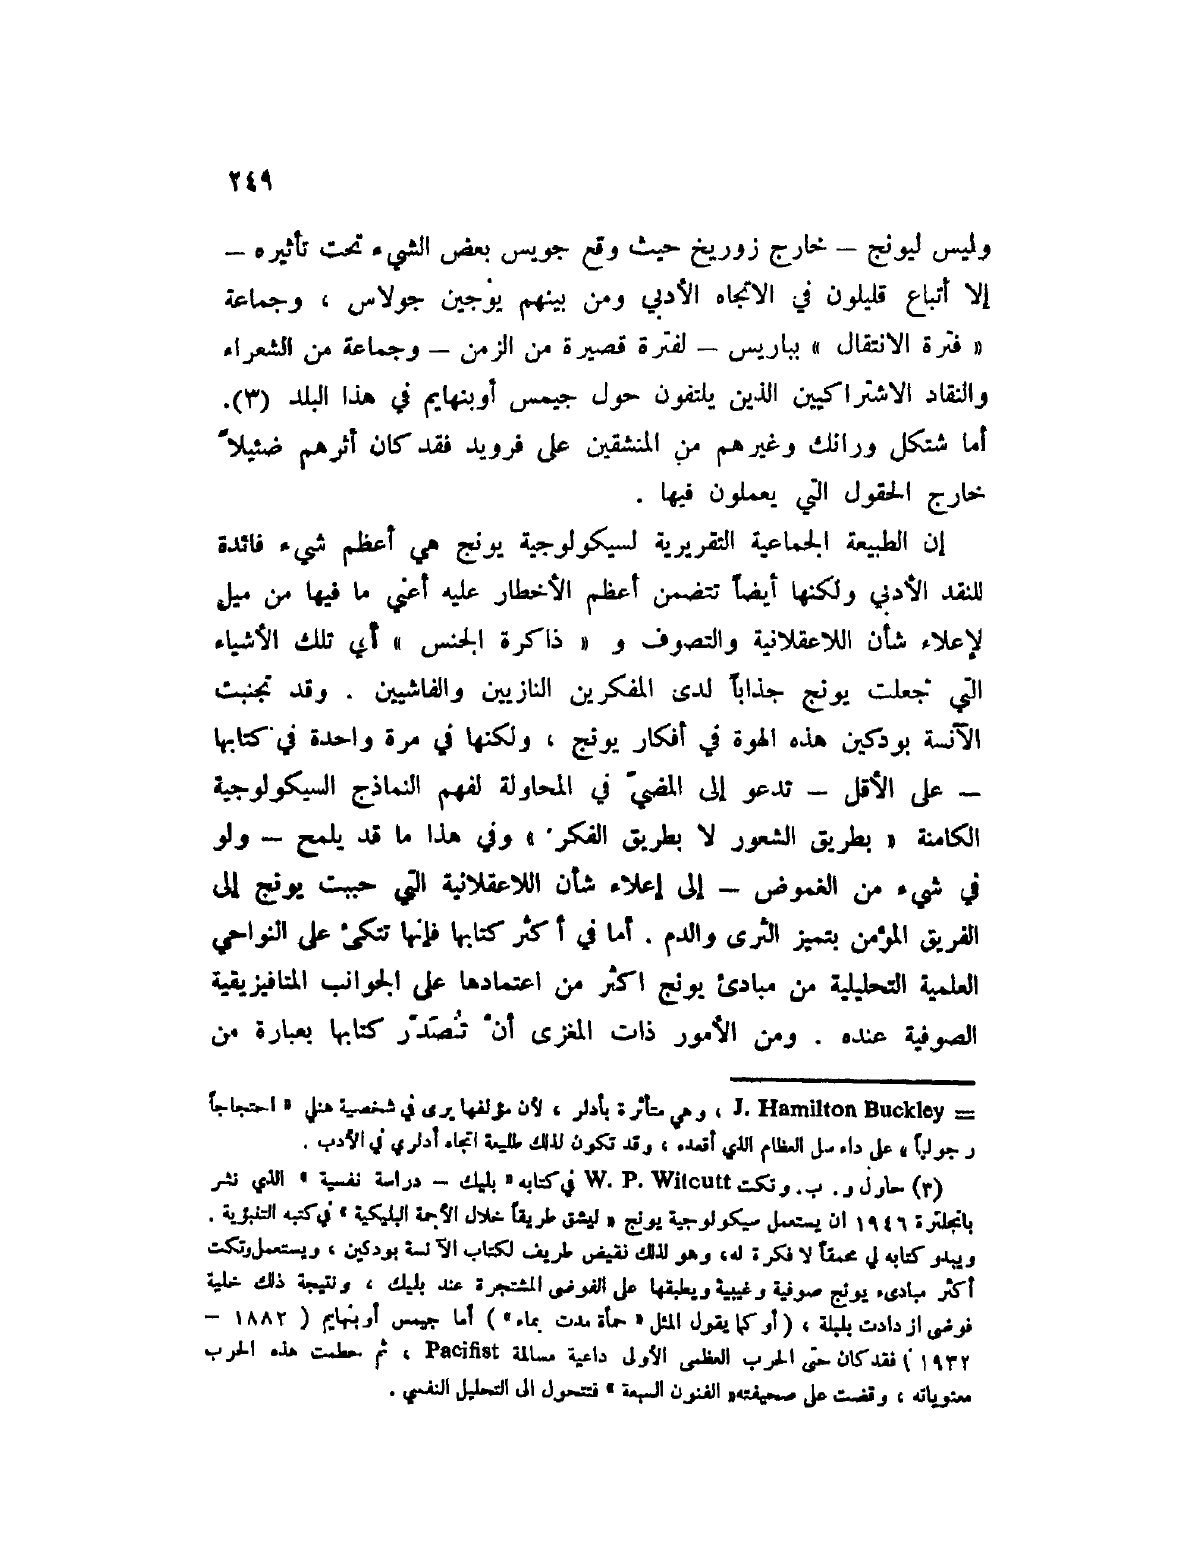 ٢٤٩
وليس ليونج – خارج زوريخ حيث وقع جويس بعض الشيء تحت تأثيره –
إلا أتباع قليلون في الاتجاه الأدبي ومن بينهم يوْجين جولاس ، وجماعة
« فترة الانتقال » بباريس – لفترة قصيرة من الزمن – وجماعة من الشعراء
والنقاد الاشتراكيين الذين يلتفون حول جيمس أوبنهايم في هذا البلد (٣).
أما شتكل ورانك وغيرهم من المنشقين على فرويد فقد كان أثرهم ضئيلاً
خارج الحقول التي يعملون فيها .
إن الطبيعة الجماعية التقريرية لسيكولوجية يونج هي أعظم شيء فائدة
للنقد الأدبي ولكنها أيضاً تتضمن أعظم الأخطار عليه أعني ما فيها من ميل
لإعلاء شأن اللاعقلانية والتصوف و « ذاكرة الجنس » أي تلك الأشياء
التي تجعلت يونج جذاباً لدى المفكرين النازيين والفاشيين . وقد تجنبت
الآنسة بودكين هذه الهوة في أفكار يونج ، ولكنها في مرة واحدة في كتابها
– على الأقل – تدعو إلى المضيّ في المحاولة لفهم النماذج السيكولوجية
الكامنة « بطريق الشعور لا بطريق الفكر » وفي هذا ما قد يلمح – ولو
في شيء من الغموض – إلى إعلاء شأن اللاعقلانية التي حببت يونج إلى
الفريق المؤمن بتميز الثرى والدم . أما في أكثر كتابها فإنها تتكئ على النواحي
العلمية التحليلية من مبادئ يونج اكثر من اعتمادها على الجوانب المتافيزيقية
الصوفية عنده . ومن الأمور ذات المغزى أنْ تُصَدّر كتابها بعبارة من
= J. Hamilton Buckley ، وهي متأثرة بأدلر ، لأن مؤلفها يرى في شخصية هنلي « احتجاجاً
رجولياً » على داء سل العظام الذي أقعده ، وقد تكون لذلك طليعة اتجاه أدلري في الأدب .
(٣) حاول و. ب. وتكت W. P. Witcutt في كتابه « بليك – دراسة نفسية » الذي نشر
بانجلترة ١٩٤٦ ان يستعمل سيكولوجية يونج « ليشق طريقاً خلال الأجمة البليكية » في كتبه التنبؤية .
ويبدو كتابه لي محمقاً لا فكرة له، وهو لذلك نقيض طريف لكتاب الآنسة بودكين ، ويستعمل وتكت
أكثر مبادىء يونج صوفية وغيبية ويطبقها على الفوضى المشتجرة عند بليك ، ونتيجة ذلك خلية
فوضى ازدادت بلبلة ، (أو كما يقول المثل « حمأة مدت بماء») أما جيمس أوبنهايم ( ١٨٨٢ –
١٩٣٢ ) فقد كان حتى الحرب العظمى الأولى داعية مسالمة Pacifist ، ثم حطمت هذه الحرب
معنوياته ، وقضت على صحيفته« الفنون السبعة » فتتحول الى التحليل النفسي .